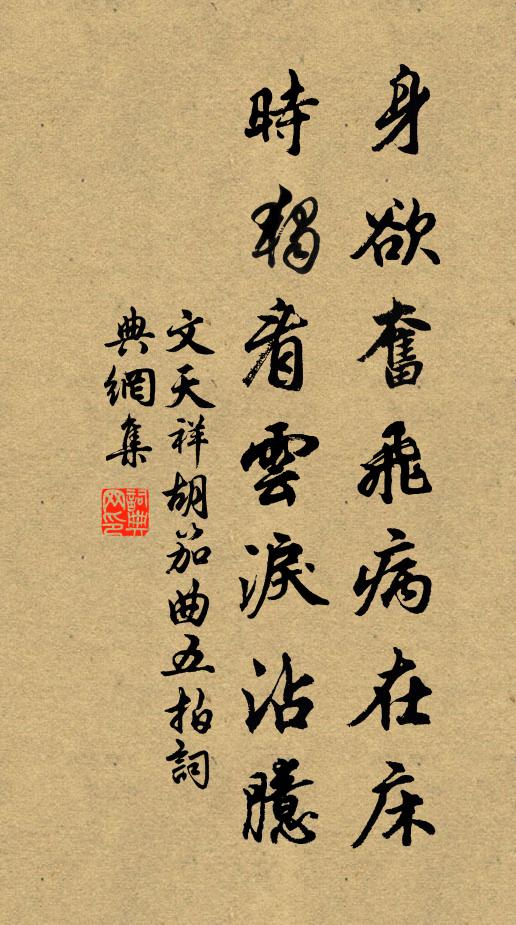 身欲奮飛病在床
時獨看雲淚沾臆
文天祥胡笳曲五拍詞
典網集
詞典網印